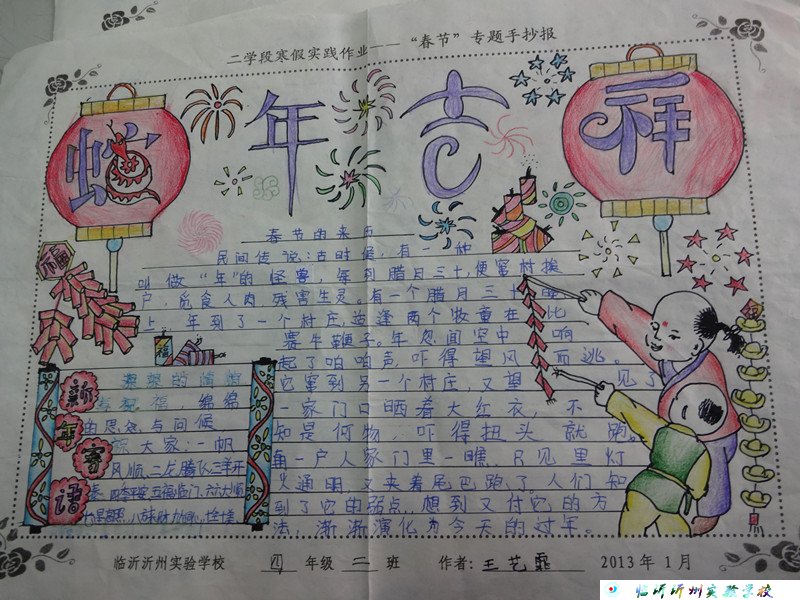 二学段寒假实践作业——“春节”专题手抄报
蛇年吉祥
春节的来历
民间传说:古时候,有一种
叫做“年”的怪兽,每到腊月三十,便窜村挨
户,觅食人肉,残害生灵。有一个腊月三十晚
上,年到了一个村庄,适逢两个牧童在比
赛牛鞭子。年忽闻空中响
起了啪啪声,吓得望风而逃。
它窜到另一个村庄,又望见了
一家门口晒着大红衣,不
知是何物,吓得扭头就跑。
一户人家门里一瞧,只见里灯
火通明,又夹着尾巴跑了。人们知
到了它的弱点,想到又付它的方
法,渐渐演化为今天的过年。
福
新年寄语
祝福,绵绵
的思念与问候
大家:一帆
风顺,二龙腾飞,三羊开
泰,四季平安,五福临门,六六大顺
临沂沂州实验学校 四年级二班 作者:王艺霏 2013年1月
临沂沂州实验学校